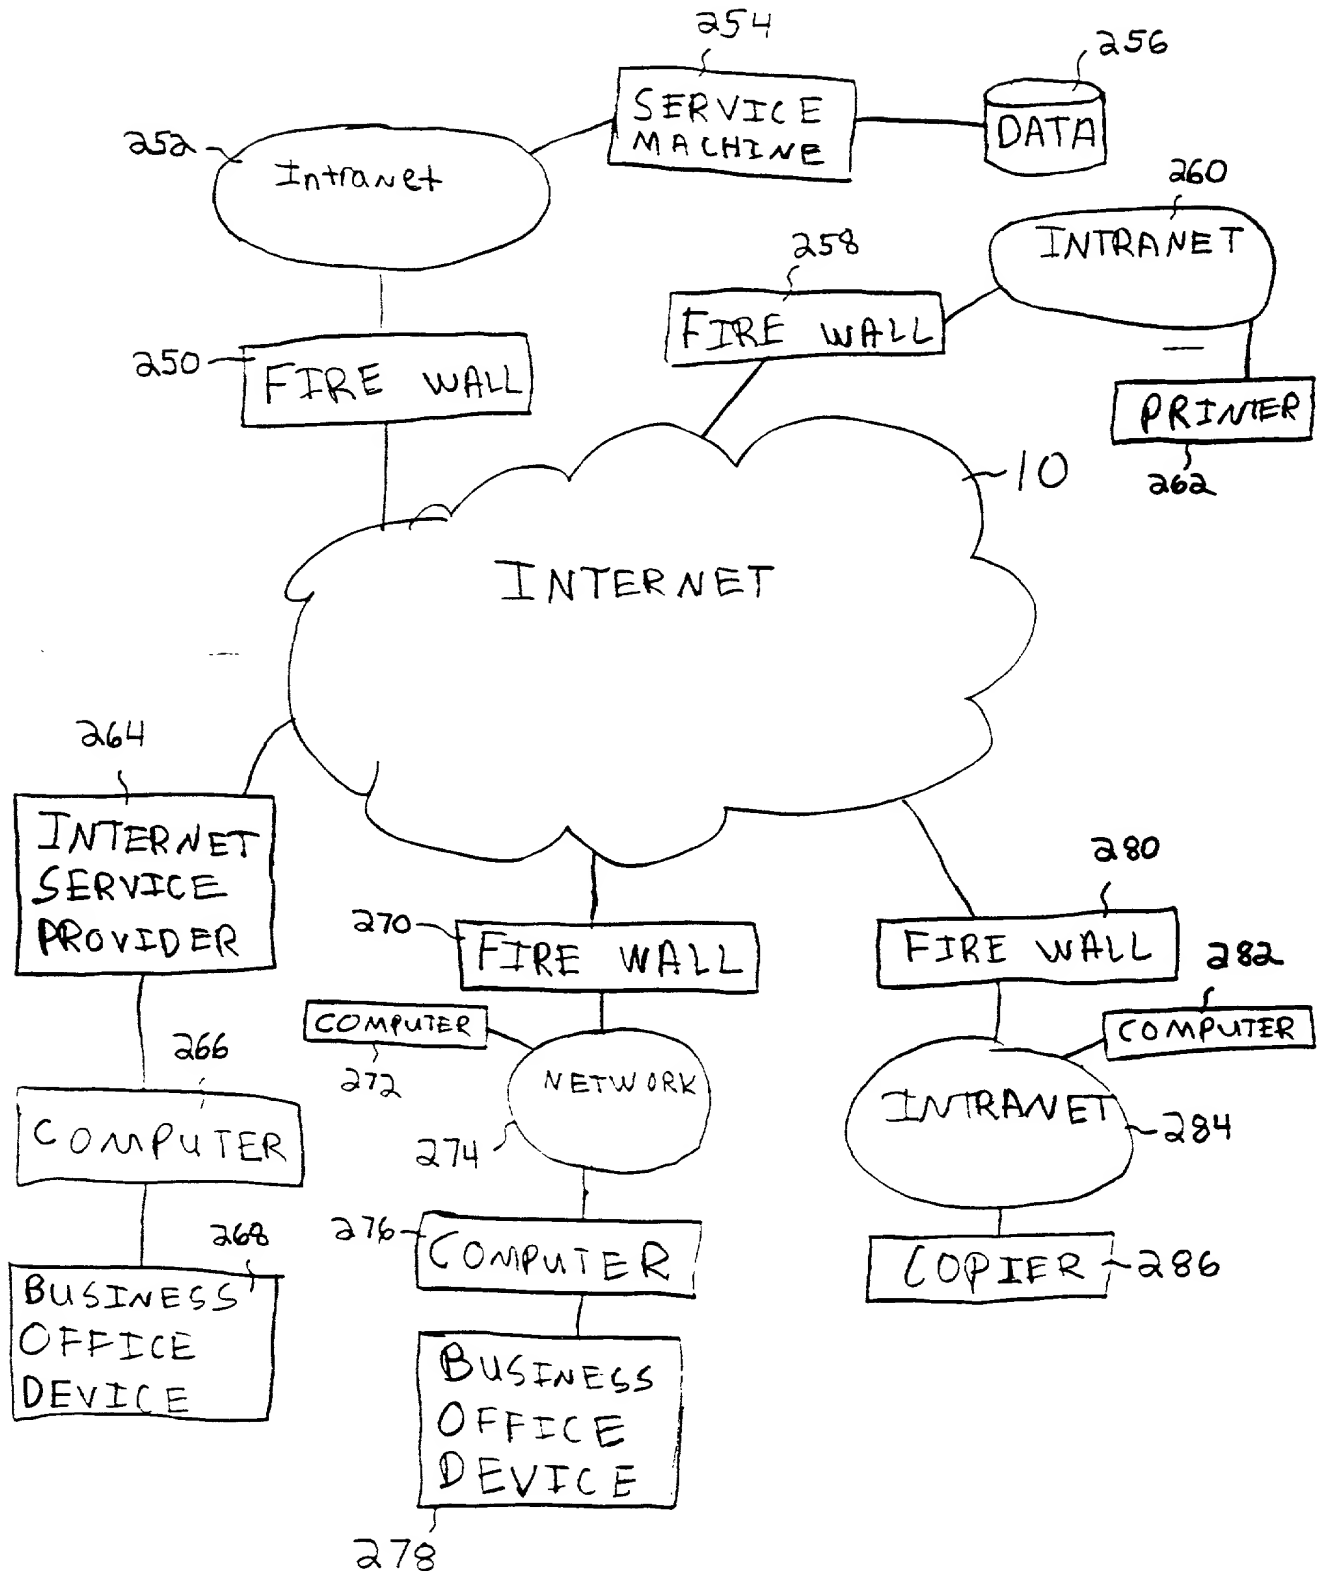 254
256
SERVICE
MACHINE
DATA
252
Intranet
260
INTRANET
258
FIRE WALL
250
FIRE WALL
PRINTER
262
10
INTERNET
264
INTERNET
SERVICE
PROVIDER
280
270
FIRE WALL
FIRE WALL
282
COMPUTER
COMPUTER
272
266
NETWORK
INTRANET
COMPUTER
274
284
276
COMPUTER
268
COPIER
286
BUSINESS
OFFICE
DEVICE
BUSINESS
OFFICE
DEVICE
278